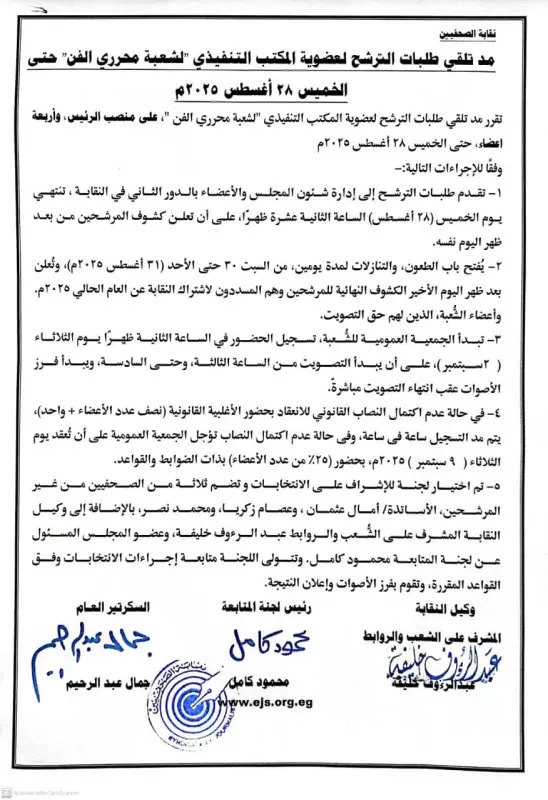 نقابة الصحفيين
مد تلقي طلبات الترشح لعضوية المكتب التنفيذي "لشعبة محرري الفن" حتى
الخميس ٢٨ أغسطس ٢٠٢٥م
تقرر مد تلقي طلبات الترشح لعضوية المكتب التنفيذي "لشعبة محرري الفن"، على منصب الرئيس، وأربعة
اعضاء، حتى الخميس ٢٨ أغسطس ٢٠٢٥م
وفقًا للإجراءات التالية:-
١- تقدم طلبات الترشح إلى إدارة شئون المجلس والأعضاء بالدور الثاني في النقابة ، تنتهي
يوم الخميس (٢٨ أغسطس) الساعة الثانية عشرة ظهرًا، على أن تعلن كشوف المرشحين من بعد
ظهر اليوم نفسه.
٢- يُفتح باب الطعون، والتنازلات لمدة يومين، من السبت ٣٠ حتى الأحد (٣١ أغسطس ٢٠٢٥م)، وتُعلن
بعد ظهر اليوم الأخير الكشوف النهائية للمرشحين وهم المسددون لاشتراك النقابة عن العام الحالي ٢٠٢٥م.
وأعضاء الشُّعبة، الذين لهم حق التصويت.
٣- تبدأ الجمعية العمومية للشُّعبة، تسجيل الحضور في الساعة الثانية ظهرًا يوم الثلاثاء
( ٢سبتمبر )، على أن يبدأ التصويت من الساعة الثالثة، وحتى السادسة، ويبدأ فرز
الأصوات عقب انتهاء التصويت مباشرةً.
٤- في حالة عدم اكتمال النصاب القانوني للانعقاد بحضور الأغلبية القانونية (نصف عدد الأعضاء + واحد)،
يتم مد التسجيل ساعة فى ساعة، وفى حالة عدم اكتمال النصاب تؤجل الجمعية العمومية على أن تُعقد يوم
الثلاثاء ( ٩ سبتمبر ) ٢٠٢٥م، بحضور (٢٥٪ من عدد الأعضاء) بذات الضوابط والقواعد.
٥- تم اختيار لجنة للإشراف على الانتخابات و تضم ثلاثة من الصحفيين من غير
المرشحين، الأساتذة/ أمال عثمان ، وعصام زكريا، ومحمد نصر، بالإضافة إلى وكيل
النقابة المشرف على الشُّعب والروابط عبد الرءوف خليفة، وعضو المجلس المسئول
عن لجنة المتابعة محمود كامل. وتتولى اللجنة متابعة إجراءات الانتخابات وفق
القواعد المقررة، وتقوم بفرز الأصوات وإعلان النتيجة.
وكيل النقابة رئيس لجنة المتابعة السكرتير العام
المشرف على الشعب والروابط
عبد الرءوف خليفة محمود كامل جمال عبد الرحيم
عبدالرءوف خليفة محمود كامل جمال عبد الرحيم
www.ejs.org.eg
نقابة الصحفيين
Scanned with CamScanner